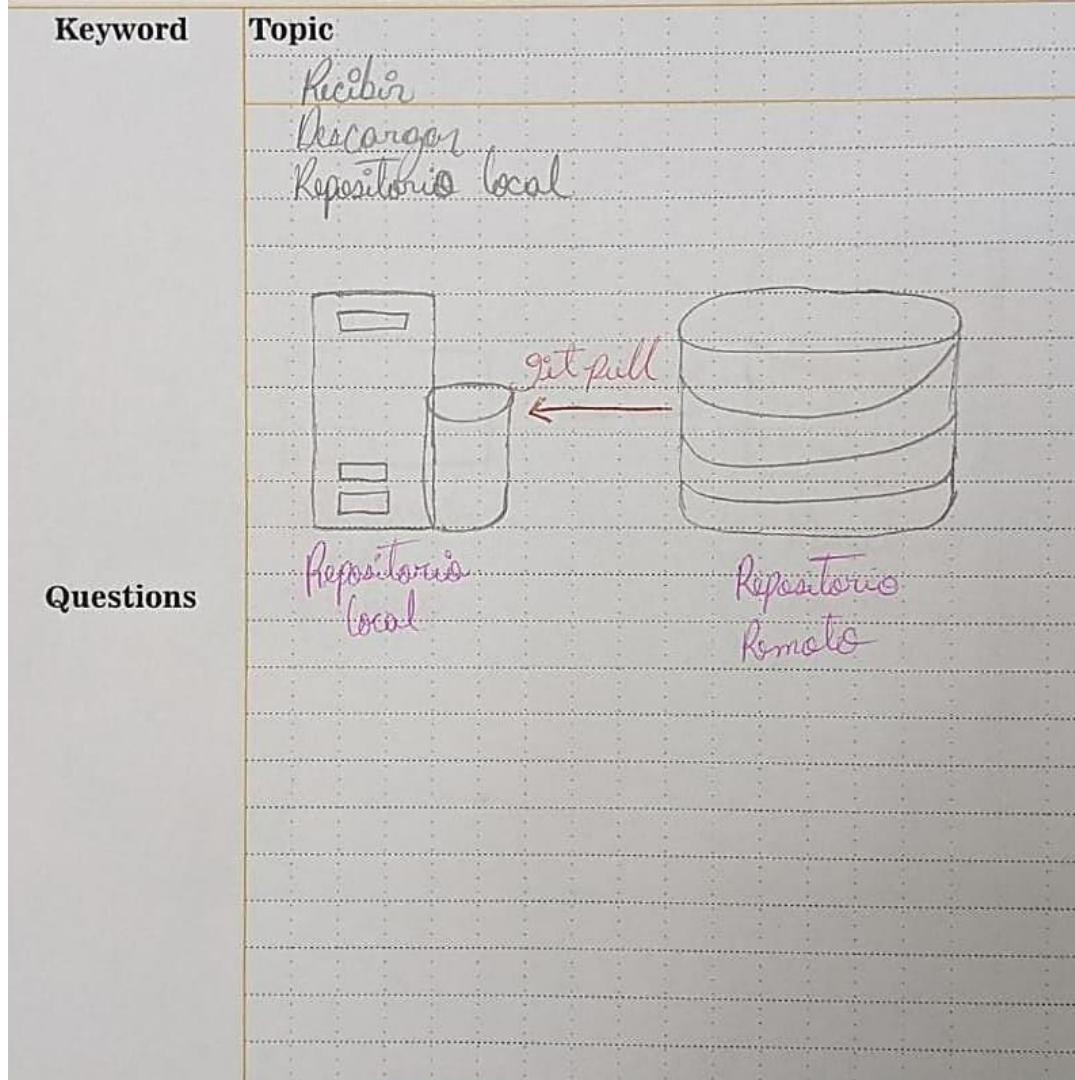 Keyword
Topic
Recibir
Descargar
Repositorio local
git pull
Repositorio
local
Repositorio
Remoto
Questions